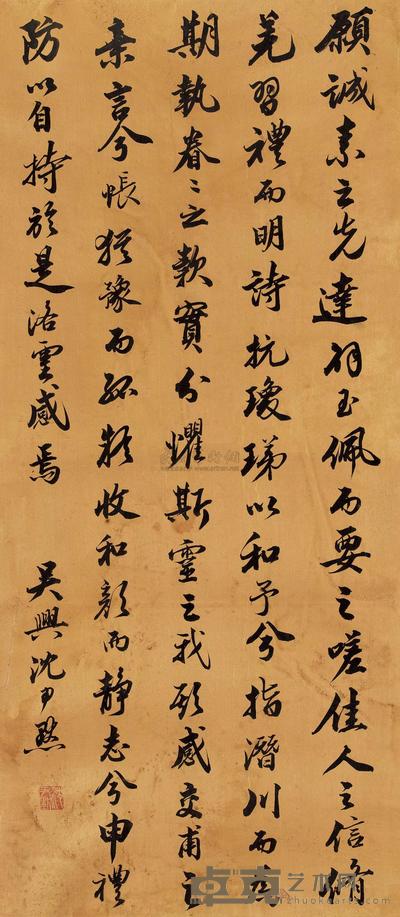 願誠素之先達解玉佩而要之嗟佳人之信脩
羌習禮而明詩抗瓊珶以和予兮指潛川而為
期執眷々之款實兮懼斯靈之我欺感交甫之
棄言兮悵猶豫而狐疑收和顏而靜志兮申禮
防以自持於是洛靈感焉
吳興沈尹默
卓克艺术网